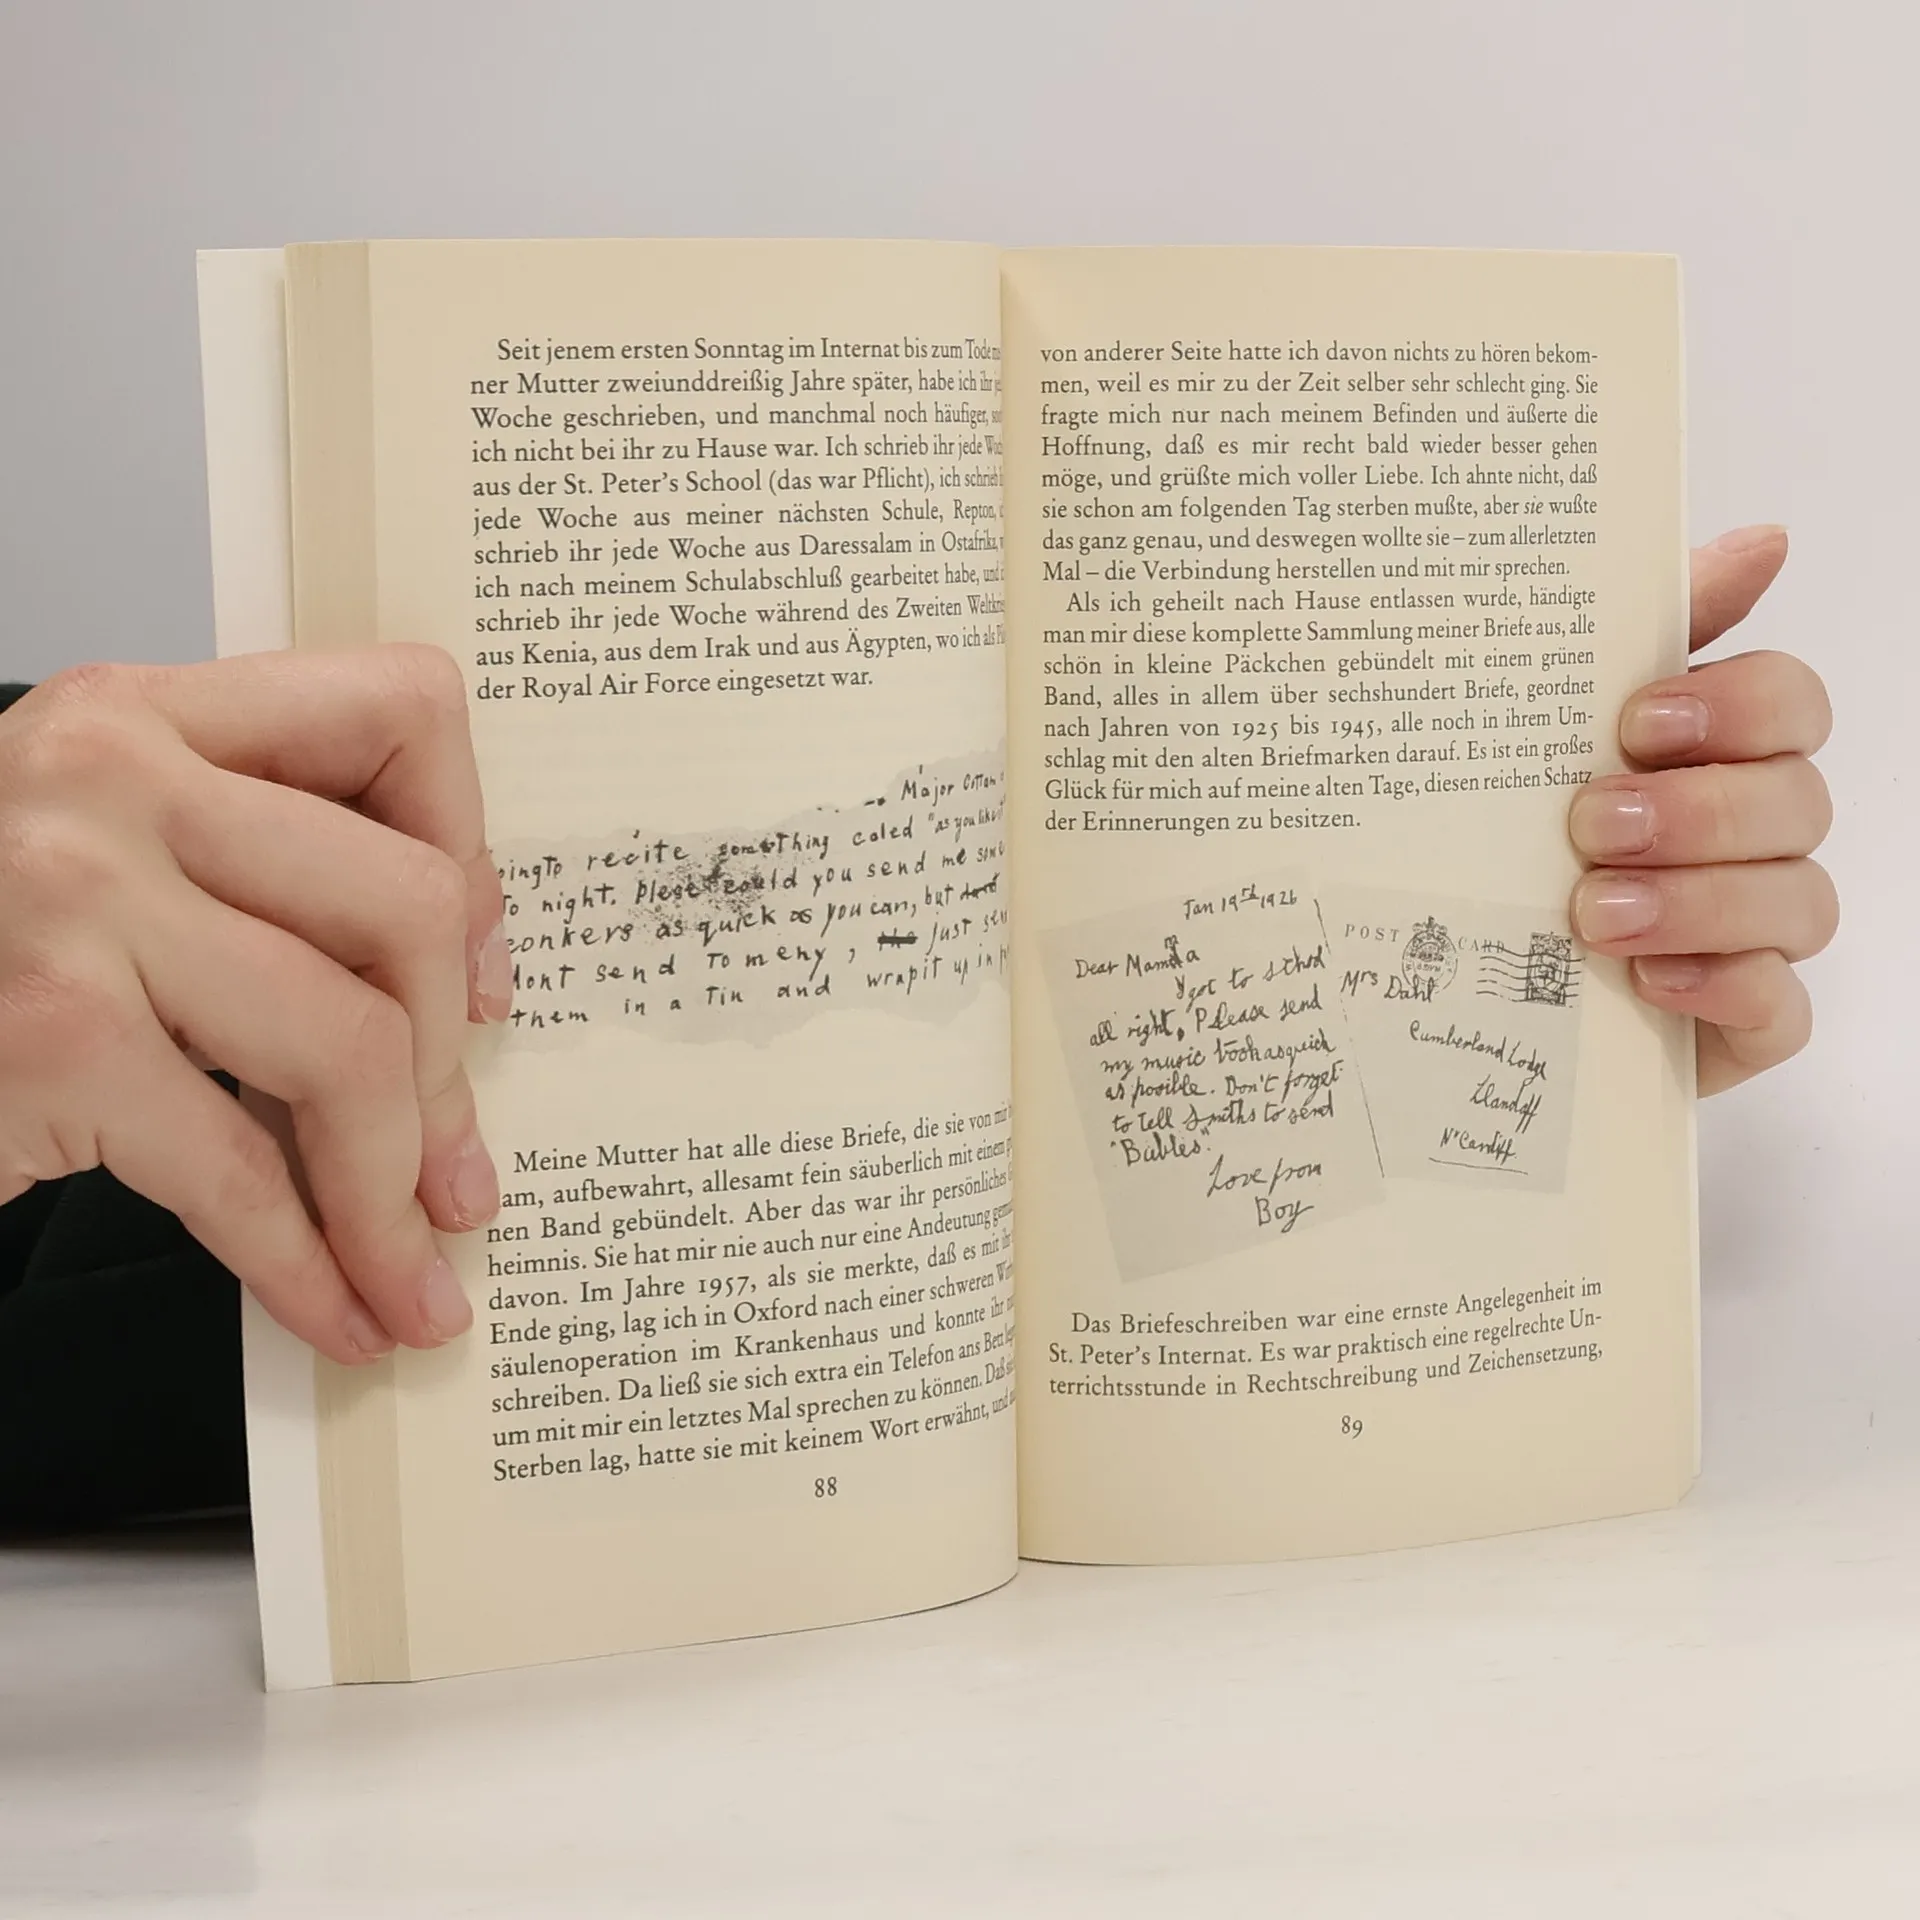 Seit jenem ersten Sonntag im Internat bis zum Tode
ner Mutter zweiunddreißig Jahre später, habe ich ihr
Woche geschrieben, und manchmal noch häufiger,
ich nicht bei ihr zu Hause war. Ich schrieb ihr jede
aus der St. Peter's School (das war Pflicht), ich schrieb
jede Woche aus meiner nächsten Schule, Repton,
schrieb ihr jede Woche aus Daressalam in Ostafrika,
ich nach meinem Schulabschluß gearbeitet habe, und
schrieb ihr jede Woche während des Zweiten
aus Kenia, aus dem Irak und aus Ägypten, wo ich als
der Royal Air Force eingesetzt war.
Major Cottam
recite something caled "as you like it"
To night. Plese could you send me some
conkers as quick as you can, but
dont send to meny, just
them in a Tin and wrapit up in
Meine Mutter hat alle diese Briefe, die sie von mir
am, aufbewahrt, allesamt fein säuberlich mit einem
nen Band gebündelt. Aber das war ihr persönliches
heimnis. Sie hat mir nie auch nur eine Andeutung
davon. Im Jahre 1957, als sie merkte, daß es mit
Ende ging, lag ich in Oxford nach einer schweren
säulenoperation im Krankenhaus und konnte ihr
schreiben. Da ließ sie sich extra ein Telefon ans Bett
um mit mir ein letztes Mal sprechen zu können. Daß
Sterben lag, hatte sie mit keinem Wort erwähnt, und
88
von anderer Seite hatte ich davon nichts zu hören bekom-
men, weil es mir zu der Zeit selber sehr schlecht ging. Sie
fragte mich nur nach meinem Befinden und äußerte die
Hoffnung, daß es mir recht bald wieder besser gehen
möge, und grüßte mich voller Liebe. Ich ahnte nicht, daß
sie schon am folgenden Tag sterben mußte, aber sie wußte
das ganz genau, und deswegen wollte sie – zum allerletzten
Mal – die Verbindung herstellen und mit mir sprechen.
Als ich geheilt nach Hause entlassen wurde, händigte
man mir diese komplette Sammlung meiner Briefe aus, alle
schön in kleine Päckchen gebündelt mit einem grünen
Band, alles in allem über sechshundert Briefe, geordnet
nach Jahren von 1925 bis 1945, alle noch in ihrem Um-
schlag mit den alten Briefmarken darauf. Es ist ein großes
Glück für mich auf meine alten Tage, diesen reichen Schatz
der Erinnerungen zu besitzen.
Jan 19th 1926
Dear Mama
I got to school
all right, Please send
my music book as quick
as posible. Don't forget
to tell Smiths to send
"Bubles".
Love from
Boy
POST CARD
Mrs Dahl
Cumberland Lodge
Llandaff
Nr Cardiff
Das Briefeschreiben war eine ernste Angelegenheit im
St. Peter's Internat. Es war praktisch eine regelrechte Un-
terrichtsstunde in Rechtschreibung und Zeichensetzung,
89